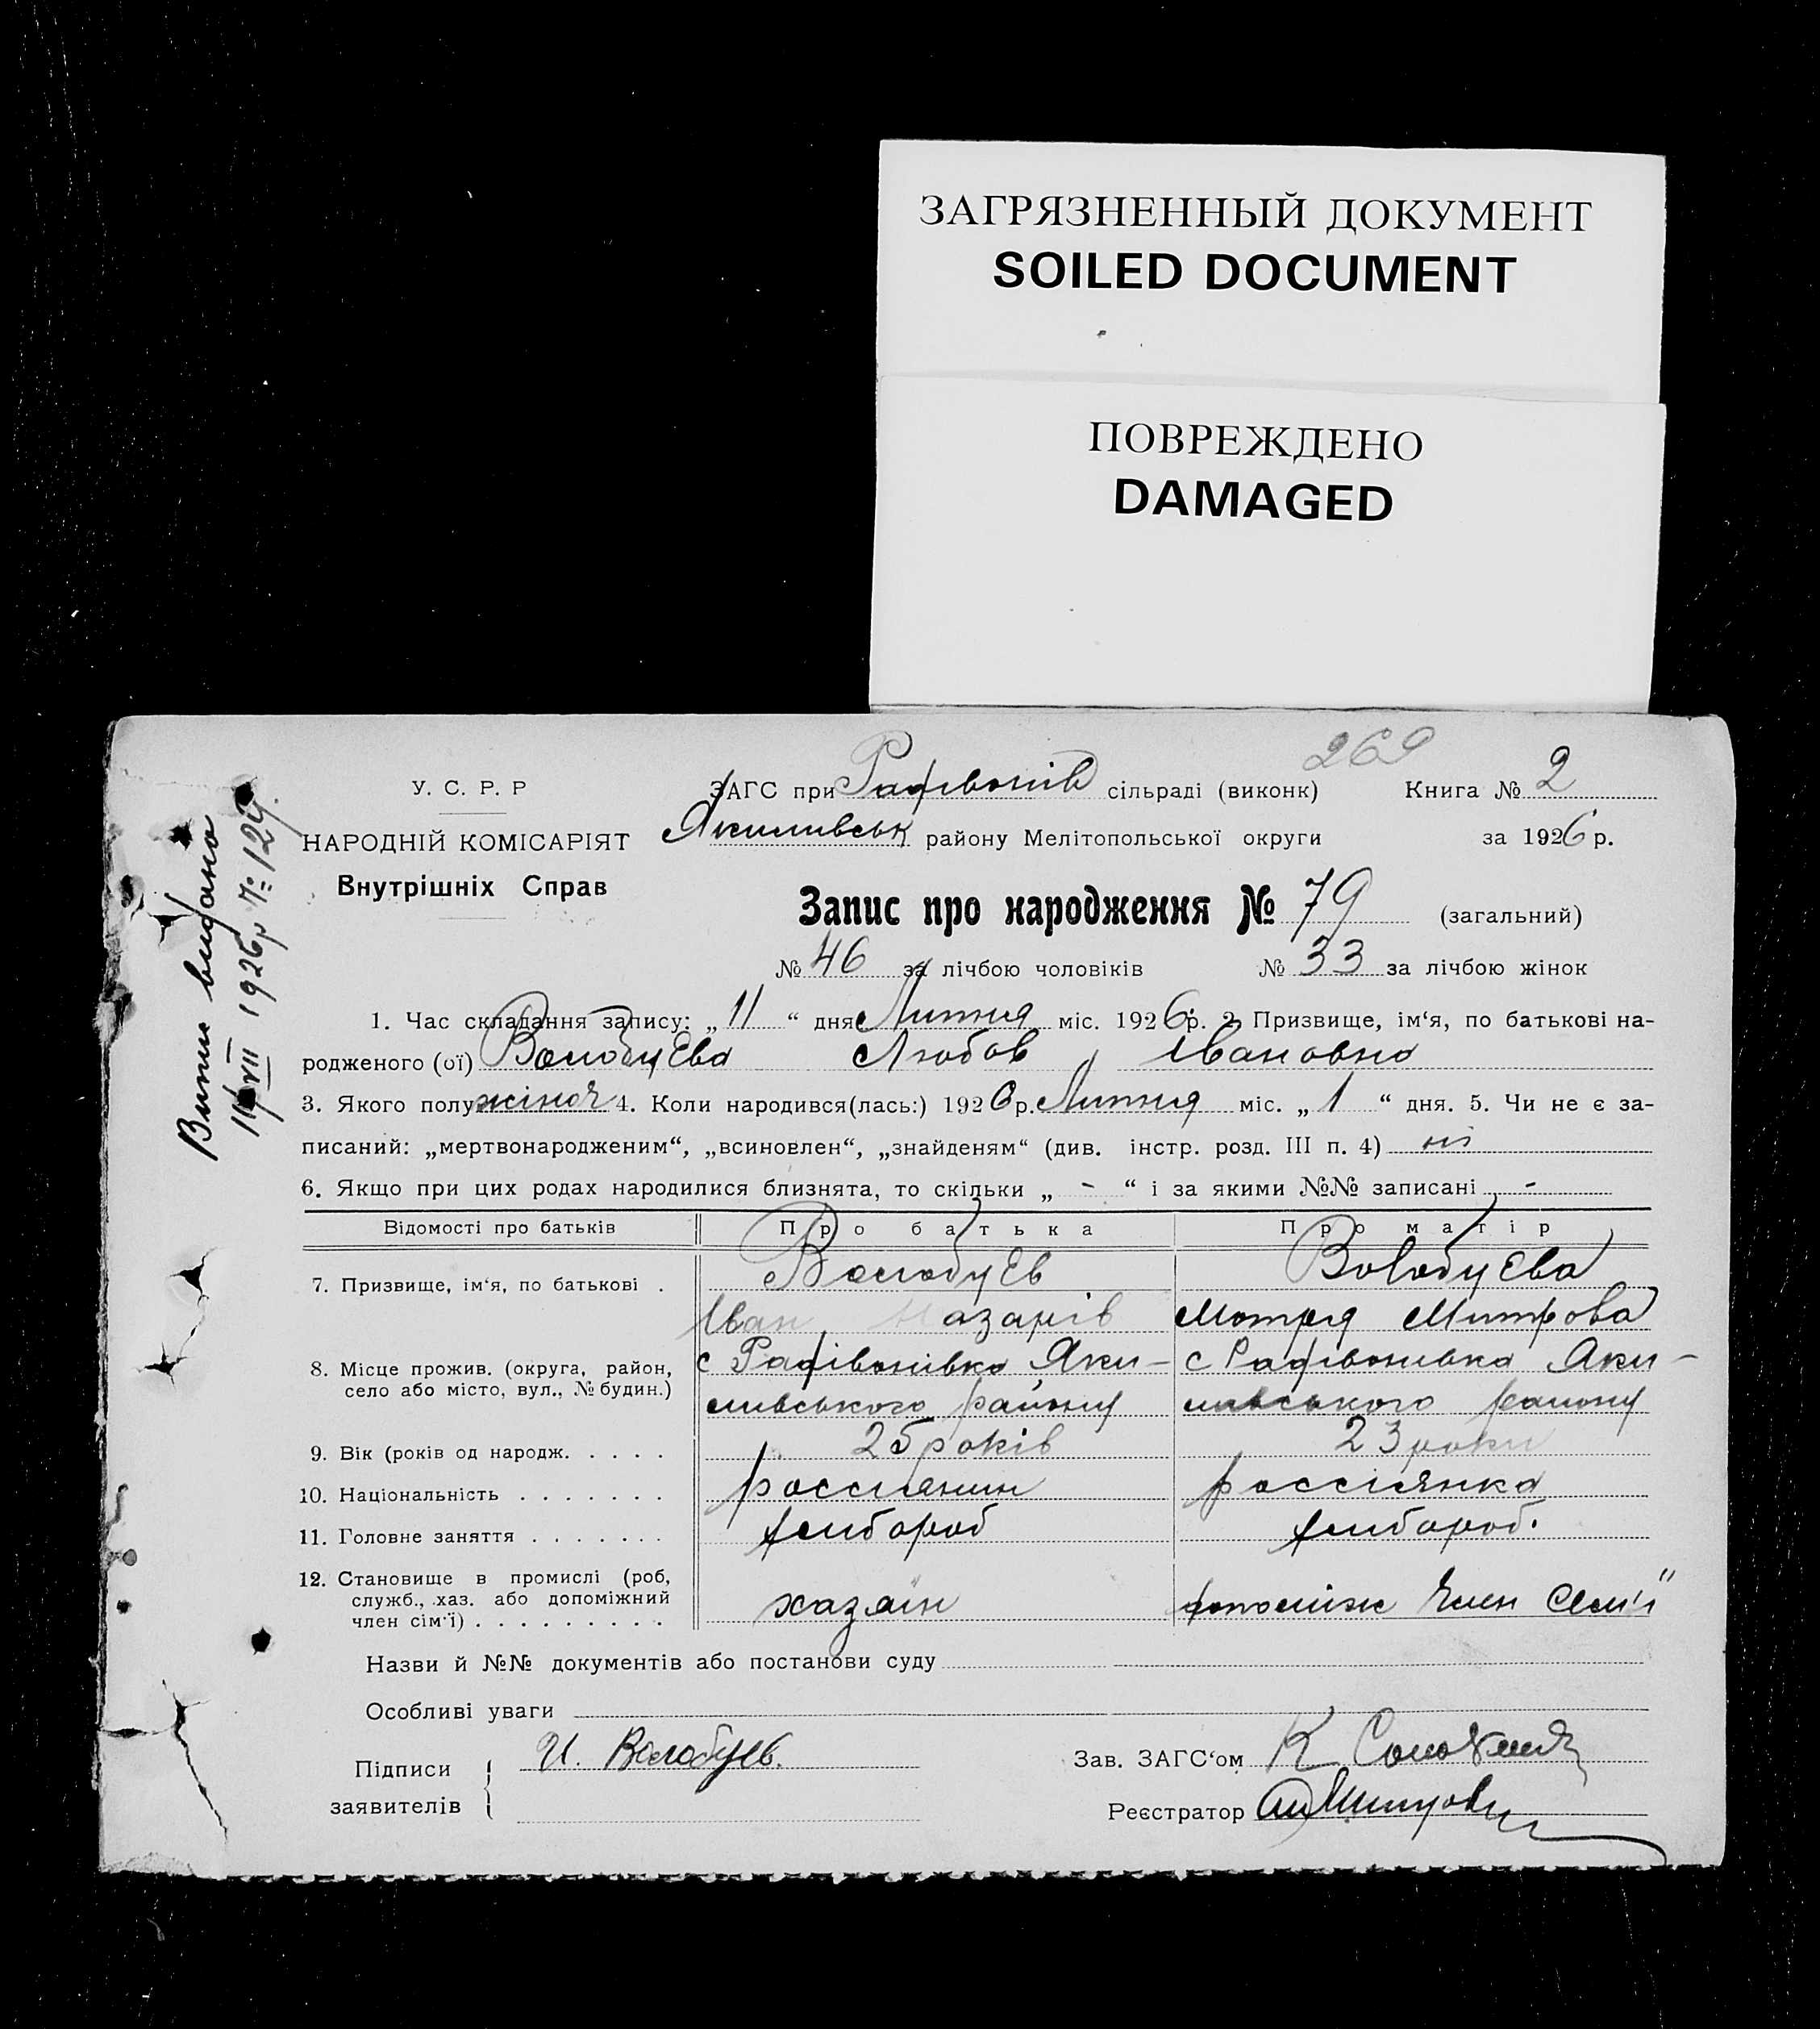 ЗАГРЯЗНЕННЫЙ ДОКУМЕНТ
SOILED DOCUMENT
ПОВРЕЖДЕНО
DAMAGED
269
У. С. Р. Р
ЗАГС при Радівонів сільраді (виконк) Книга № 2
НАРОДНІЙ КОМІСАРІЯТ
Якимивськ району Мелітопольської округи за 1926 р.
Внутрішніх Справ
Запис про народження № 79 (загальний)
№ 46 за лічбою чоловіків № 33 за лічбою жінок
Випис видано
11/VII 1926р № 124
1. Час складання запису: „ 11 “ дня Липня міс. 1926 р. 2. Призвище, ім‘я, по батькові на-
родженого (ої) Волобуєва Любов Івановна
3. Якого полу жіноч 4. Коли народився(лась:) 1926 р. Липня міс. „ 1 “ дня. 5. Чи не є за-
писаний: „мертвонародженим“, „всиновлен“, „знайденям“ (див. інстр. розд. III п. 4) ні
6. Якщо при цих родах народилися близнята, то скільки „ - “ і за якими №№ записані -
Відомості про батьків Про батька Про матір
7. Призвище, ім‘я, по батькові . Волобуєв Волобуєва
Іван Назарів Мотря Митрова
8. Місце прожив. (округа, район, с Радівонівка Яки- с Радівонивка Яки-
село або місто, вул., № будин.)
мивського району мивського району
9. Вік (років од народж. . . . . 25 років 23 роки
10. Національність . . . . . . . россіянин россіянка
11. Головне заняття . . . . . . . хлибороб хлибороб.
12. Становище в промислі (роб,
служб., хаз. або допоміжний
член сім‘ї) . . . . . . . . . хазяїн допоміж член семїї
Назви й №№ документів або постанови суду
Особливі уваги
Підписи И. Волобуев. Зав. ЗАГС‘ом К
заявителів Реєстратор